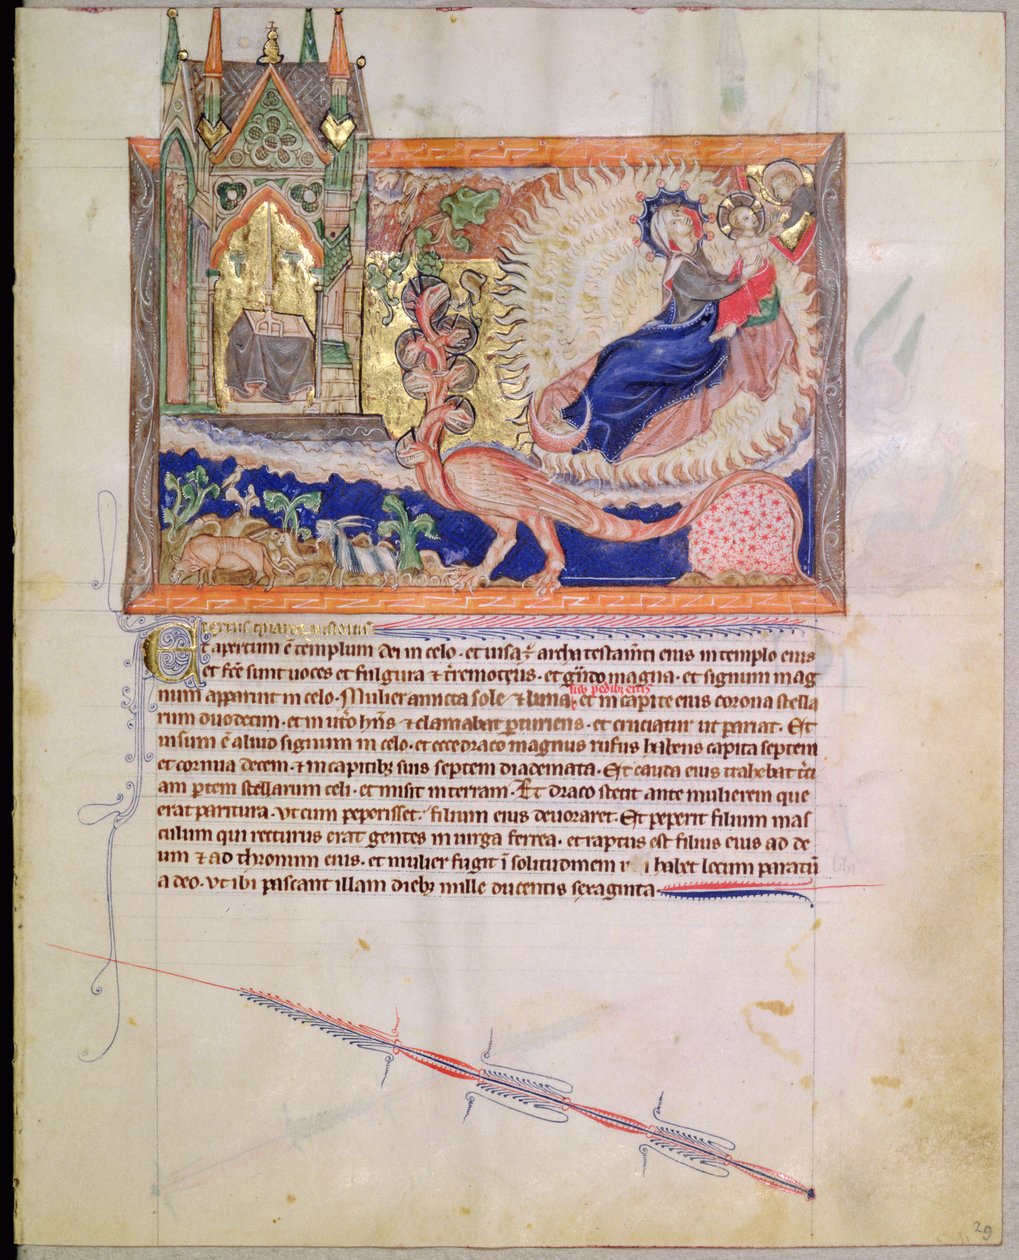 Et apertum ē templum dei in celo · et uisa ÷ archa testam̄ti eius in templo eius
et fc̄e sunt uoces et fulgura ⁊ t̄remotus · et gn̄do magna · et signum mag
num apparuit in celo · Mulier amicta sole ⁊ luna sub pedib; eius et in capite eius corona stella
rum duodecim · et in ut̄o hn̄s ⁊ clamabat parturiens · et cruciatur ut pariat · Et
uisum ē aliud signum in celo · et ecce draco magnus rufus habens capita septem
et cornua decem · ⁊ in capitib; suis septem diademata · Et cauda eius trahebat t̄ci
am partem stellarum celi · et misit in terram · Et draco stetit ante mulierem que
erat paritura · ut cum peperisset · filium eius deuoraret · Et peperit filium mas
culum qui recturus erat gentes in uirga ferrea · et raptus est filius eius ad de
um ⁊ ad thronum eius · et mulier fugit ī solitudinem habet locum paratū
a deo · ut ibi pascant illam dieb; mille ducentis sexaginta
29